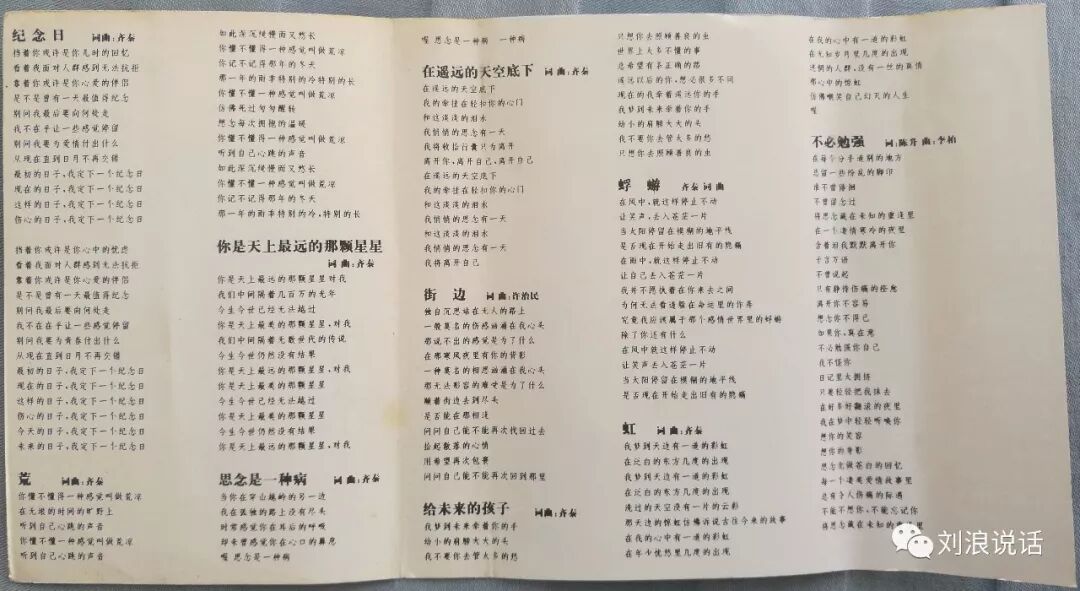 纪念日 词曲:齐秦
挡着你或许是你儿时的回忆
看着我面对人群感到无法抗拒
靠着你或许是你心爱的伴侣
是不是曾有一天最值得纪念
别问我最后要向何处走
我不在乎让一些感觉停留
别问我要为爱情付出什么
从现在直到日月不再交错
最初的日子,我定下一个纪念日
现在的日子,我定下一个纪念日
这样的日子,我定下一个纪念日
伤心的日子,我定下一个纪念日
挡着你或许是你心中的忧虑
看着我面对人群感到无法抗拒
靠着你或许是你心爱的伴侣
是不是曾有一天最值得纪念
别问我最后要向何处走
我不在在乎让一些感觉停留
别问我要为青春付出什么
从现在直到日月不再交错
最初的日子,我定下一个纪念日
现在的日子,我定下一个纪念日
这样的日子,我定下一个纪念日
伤心的日子,我定下一个纪念日
今天的日子,我定下一个纪念日
未来的日子,我定下一个纪念日
荒 词曲:齐秦
你懂不懂得一种感觉叫做荒凉
在无垠的时间的旷野上
听到自己心跳的声音
你懂不懂得一种感觉叫做荒凉
听到自己心跳的声音
如此深沉缓慢而又悠长
你懂不懂得一种感觉叫做荒凉
你记不记得那年的冬天
那一年的雨季特别的冷特别的长
你懂不懂得一种感觉叫做荒凉
仿佛死过匆匆醒转
想念每次拥抱的温暖
你懂不懂得一种感觉叫做荒凉
听到自己心跳的声音
如此深沉缓慢而又悠长
你懂不懂得一种感觉叫做荒凉
你记不记得那年的冬天
那一年的雨季特别的冷,特别的长
你是天上最远的那颗星星
词曲:齐秦
你是天上最远的那颗星星对我
我们中间隔着几百万的光年
今生今世已经无法越过
你是天上最美的那颗星星,对我
我们中间隔着无数世代的传说
今生今世仍然没有结果
你是天上最远的那颗星星,对我
你是天上最美的那颗星星
今生今世已经无法越过
你是天上最美的那颗星星
今生今世仍然没有结果
你是天上最远的那颗星星,对我
思念是一种病 词曲:齐秦
当你在穿山越岭的另一边
我在孤独的路上没有尽头
时常感觉你在耳后的呼吸
却未曾感觉你在心口的鼻息
喔 思念是一种病
喔 思念是一种病 一种病
在遥远的天空底下 词曲:齐秦
在遥远的天空底下
我的牵挂在轻扣你的心门
和这淡淡的泪水
我悄悄的思念有一天
我将收拾行囊只为离开
离开你,离开自己,离开自己
在遥远的天空底下
我的牵挂在轻扣你的心门
和这淡淡的泪水
我悄悄的思念有一天
和这淡淡的泪水
我悄悄的思念有一天
我将离开自己
街边 词曲:许治民
独自沉思站在无人的路上
一般莫名的伤感涌满在我心头
那说不出的感觉是为了什么
在那寒风夜里有你的背影
一种莫名的相思涌满在我心头
那无法形容的难受是为了什么
顺着街边去到尽头
是否能在那相逢
问问自己能不能再次找回过去
拾起散落的心情
用希望再次包裹
问问自己能不能再次回到那里
给未来的孩子 词曲:齐秦
我梦到未来牵着你的手
幼小的肩膀大大的头
我不要你去管太多的愁
只想你去照顾善良的虫
世界上太多不懂的事
总希望有不正确的梦
遥远以后的你,想必很多不同
现在的我牵着遥远你的手
我梦到未来牵着你的手
幼小的肩膀大大的头
我不要你去管太多的愁
只想你去照顾善良的虫
蜉蝣 齐秦词曲
在风中,就这样停止不动
让笑声,去入苍茫一片
当太阳停留在模糊的地平线
是否现在开始走出旧有的晚痛
在雨中,就这样停止不动
让自己去入苍茫一片
我并不愿执着在你来去之间
为何无法看透躲在命运里的你弄
究竟我应该属于那个感情世界里的蜉蝣
除了你还有什么
在风中就这样停止不动
让笑声去入苍茫一片
当太阳停留在模糊的地平线
是否现在开始走出旧有的晚痛
虹 词曲:齐秦
我梦到天边有一道的彩虹
在泛白的东方几度的出现
我梦到天边有一道的彩虹
在泛白的东方几度的出现
洗过的天空没有一片的云彩
那天边的惊虹仿佛诉说古往今来的故事
在我的心中有一道的彩虹
在年少恍愁里几度的出现
在我的心中有一道的彩虹
在无知岁月里几度的出现
迷惘的人群,没有一丝的真情
那心中的惊虹
仿佛嘲笑自己幻灭的人生
喔
不必勉强 词:陈升 曲:李柏
在每个分手道别的地方
总留一些纷乱的脚印
谁不曾徘徊
不曾留怎过
将思念藏在未知的重逢里
在一个凄情寒冷的夜里
含着泪我默默离开你
千言万语
不曾说起
只有静待伤痛的痊愈
离开你不容易
想念你不得已
如果你,真在意
不必勉强你自己
我不怪你
日记里太拥挤
只要轻轻把我抹去
在好多好翻滚的夜里
我在梦中轻轻听唤你
想你的笑容
想你的身影
思念充做苍白的回忆
每一个凄美爱情故事里
总有令人伤痛的际遇
不能不想你,不能忘记你
将思念藏在未知的重逢里
刘浪说话